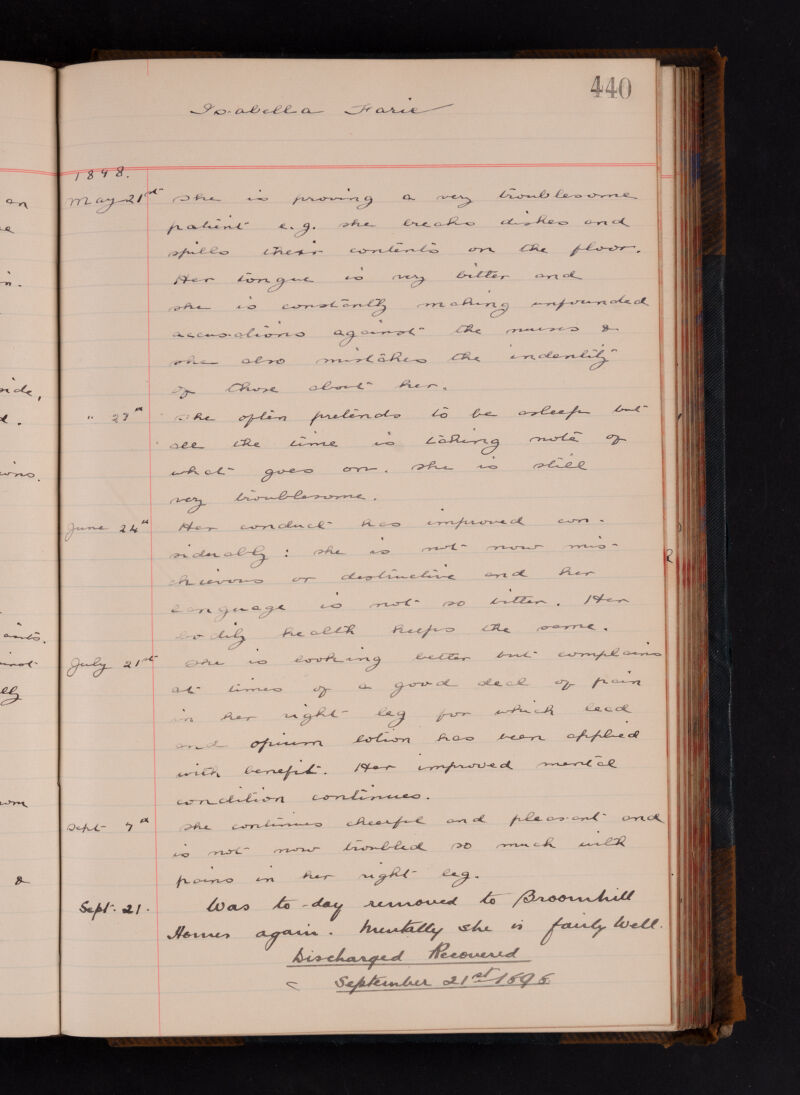 440
Isabella Farie
1898.
May 21st She is proving a very troublesome
patient e.g. she breaks dishes and
spills their contents on the floor.
Her tongue is very bitter and
she is constantly making unfounded
accusations against the nurses &
she also mistakes the indentity
of those about her.
" 27th She often pretends to be asleep but
all the time is taking note of
what goes on. She is still
very troublesome.
June 24th Her conduct has improved con-
siderably: she is not now mis-
chievous or destructive and her
language is not so bitter. Her
bodily health keeps the same.
July 21st She is looking better but complains
at times of a good deal of pain
in her right leg for which lead
and opium lotion has been applied
with benefit. Her improved mental
condition continues.
Sept 7th She continues cheerful and pleasant and
is not now troubled so much with
pains in her right leg.
Sept. 21. Was to-day removed to Broomhill
Homes again. Mentally she is fairly well.
Discharged Recovered
September 21st 1898